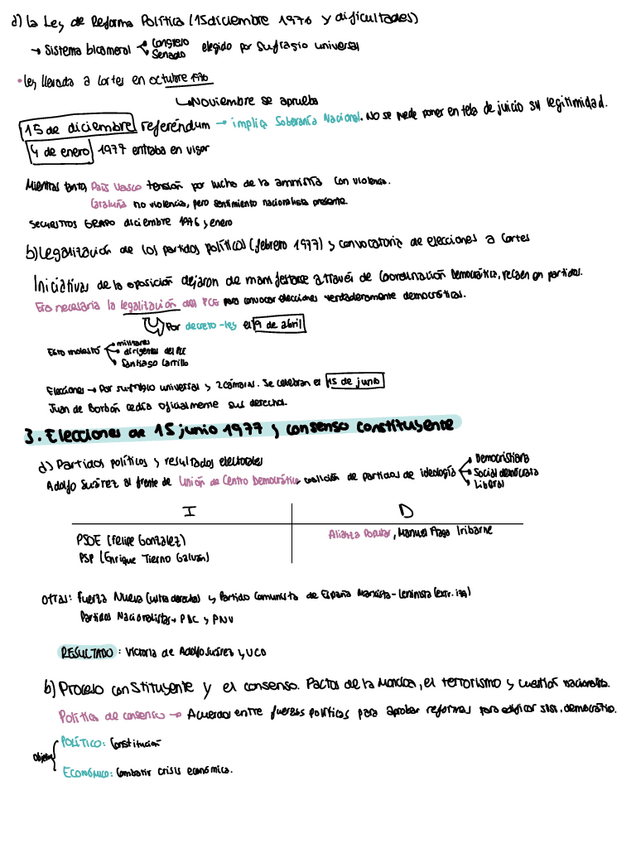 a) La Ley de Reforma Política (15 diciembre 1976 y dificultades)
→ Sistema bicameral Congreso Senado elegido por Sufragio universal
• Ley llevada a Cortes en octubre 1976
↳ Noviembre se aprueba
15 de diciembre referéndum → implica Soberanía Nacional. No se puede poner en tela de juicio su legitimidad.
4 de enero 1977 entraba en vigor
Mientras tanto, País Vasco tensión por lucha de la amnistía con violencia.
Cataluña no violencia, pero sentimiento nacionalista presente.
Secuestros GRAPO diciembre 1976 y enero
b) Legalización de los partidos políticos (febrero 1977) y convocatoria de elecciones a Cortes
Iniciativas de la oposición dejaron de manifestarse a través de Coordinación Democrática, recaen en partidos.
Era necesaria la legalización del PCE para convocar elecciones verdaderamente democráticas.
Por decreto-ley el 9 de abril
Esto molestó militares
dirigentes del PCE
Santiago Carrillo
Elecciones → Por sufragio universal y 2 cámaras. Se celebran el 15 de junio
Juan de Borbón cedía oficialmente sus derechos.
3. Elecciones de 15 junio 1977 y consenso constituyente
a) Partidos políticos y resultados electorales
Adolfo Suárez al frente de Unión de Centro Democrático, coalición de partidos de ideología Democristiana
Social demócrata
Liberal
I D
PSOE (Felipe González) Alianza Popular, Manuel Fraga Iribarne
PSP (Enrique Tierno Galván)
Otras: Fuerza Nueva (ultra derecha) y Partido Comunista de España Marxista-Leninista (extr. izq)
Partidos Nacionalistas → PDC y PNV
RESULTADO: Victoria de Adolfo Suárez y UCD
b) Proceso constituyente y el consenso. Pactos de la Moncloa, el terrorismo y cuestión nacionalista.
Política de consenso → Acuerdos entre fuerzas políticas para aprobar reformas para edificar sist. democrático.
Objetivo POLÍTICO: Constitución
ECONÓMICO: Combatir crisis económica.